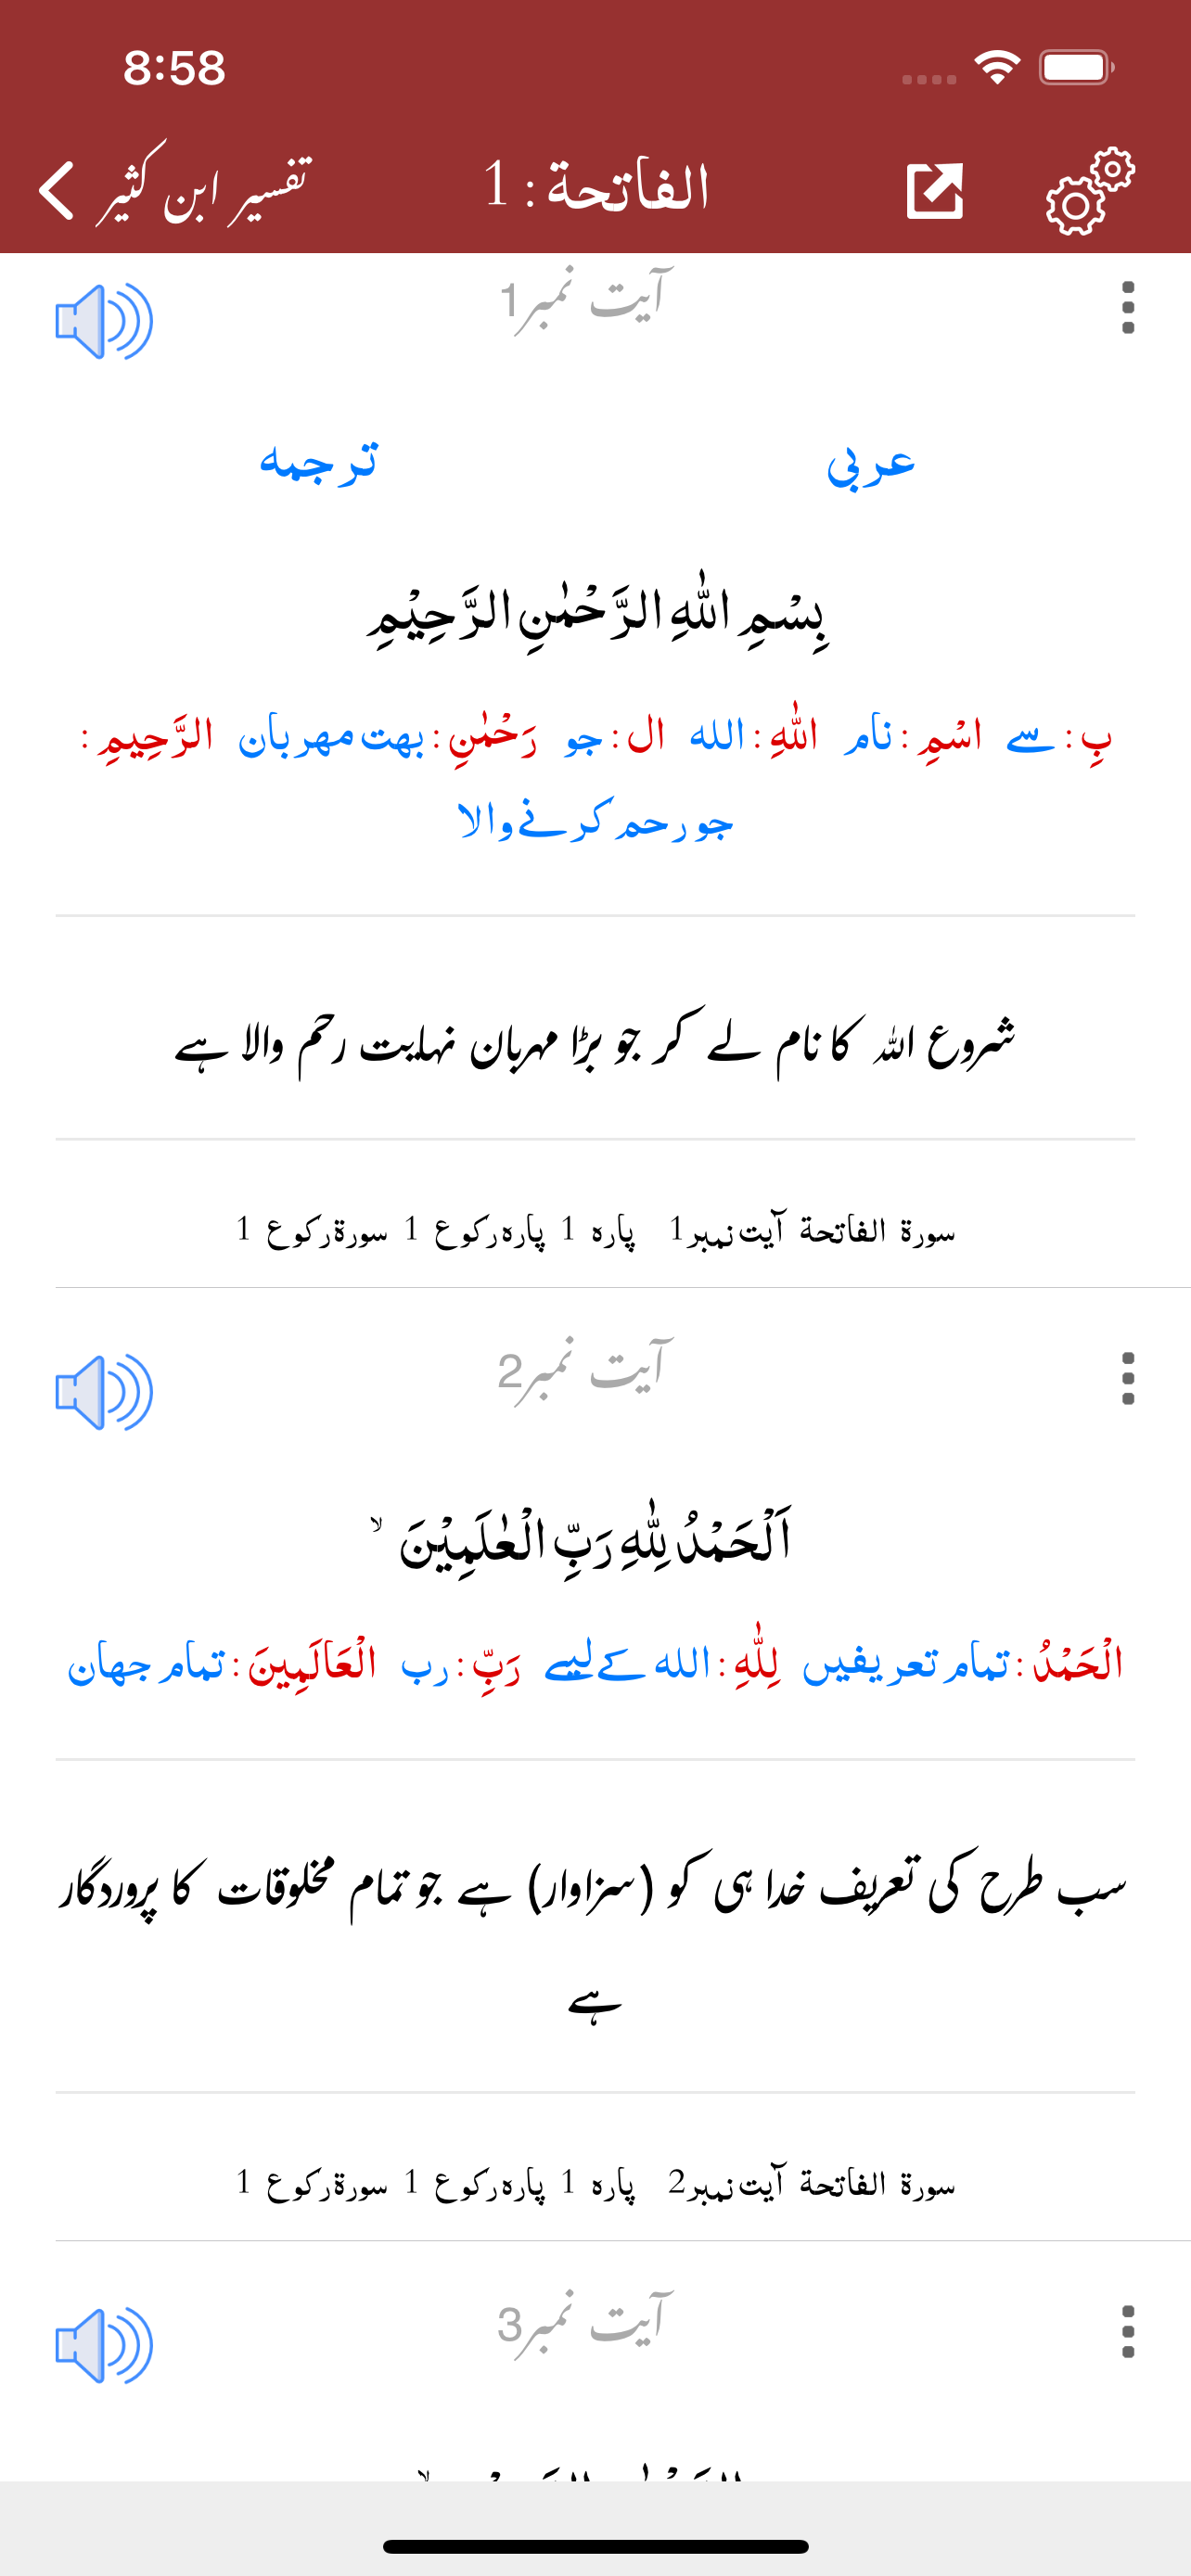 8:58
تفسیر ابن کثیر
الفاتحة : 1
آیت نمبر1
عربی ترجمہ
بِسْمِ اللّٰهِ الرَّحْمٰنِ الرَّحِیْمِ
بِ : سے اسْمِ : نام اللّٰهِ : الله ال : جو رَحْمٰنِ : بہت مہربان الرَّحِيمِ :
جو رحم کرنے والا
شروع الله کا نام لے کر جو بڑا مہربان نہایت رحم والا ہے
سورة الفاتحة آیت نمبر1 پاره 1 پاره رکوع 1 سورة رکوع 1
آیت نمبر2
اَلْحَمْدُ لِلّٰهِ رَبِّ الْعٰلَمِیْنَ ۙ
الْحَمْدُ : تمام تعریفیں لِلّٰهِ : الله کے لیے رَبِّ : رب الْعَالَمِينَ : تمام جهان
سب طرح کی تعریف خدا ہی کو (سزاوار) ہے جو تمام مخلوقات کا پروردگار
ہے
سورة الفاتحة آیت نمبر2 پاره 1 پاره رکوع 1 سورة رکوع 1
آیت نمبر3